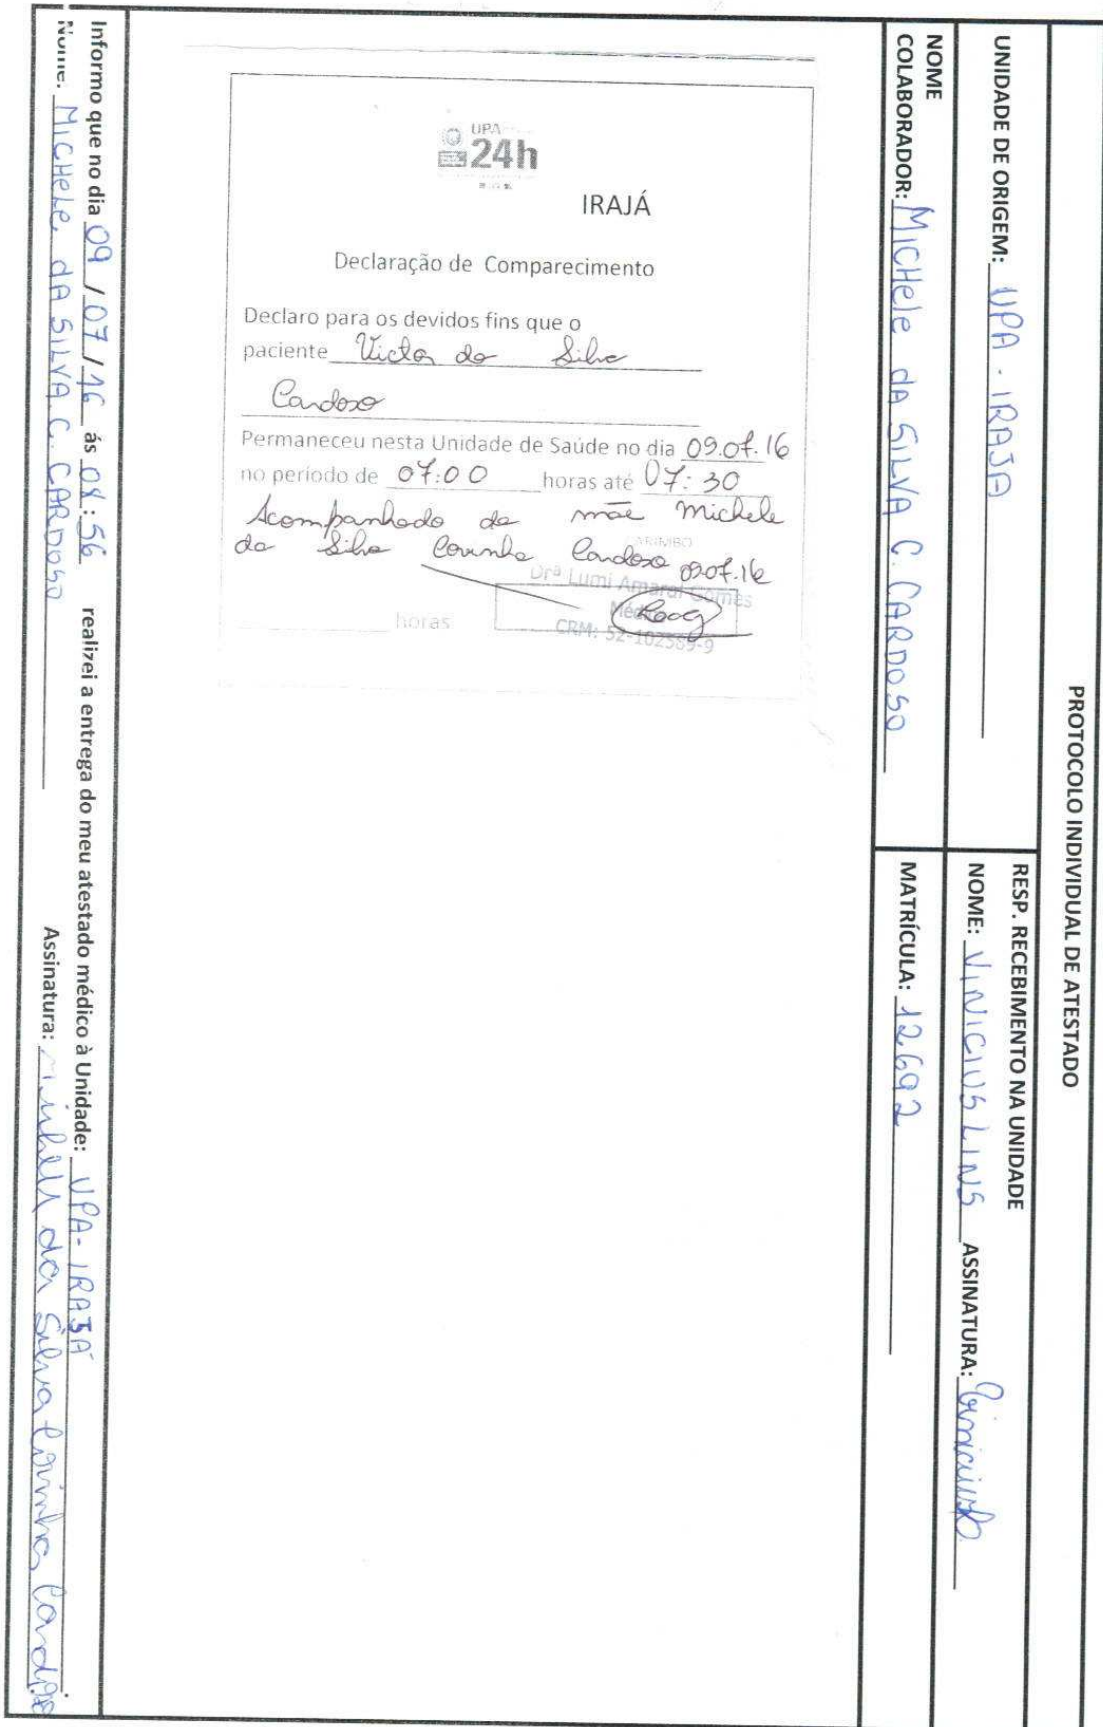 PROTOCOLO INDIVIDUAL DE ATESTADO
UNIDADE DE ORIGEM: UPA - IRAJA
RESP. RECEBIMENTO NA UNIDADE
NOME: VINICIUS LINS ASSINATURA:
NOME
COLABORADOR: MICHele dA SILVA C. CARDOSO
MATRÍCULA: 12692
UPA
24h
IRAJÁ
Declaração de Comparecimento
Declaro para os devidos fins que o
paciente Victor da Silva
Cardoso
Permaneceu nesta Unidade de Saúde no dia 09.07.16
no período de 07:00 horas até 07:30
Acompanhado da mãe Michele
da Silva Cardoso 09.07.16
CARIMBO
Drª Lumi Amaral Gomes
Médica
CRM: 52-102589-9
horas
Informo que no dia 09 / 07 / 16 ás 08:56 realizei a entrega do meu atestado médico à Unidade: UPA - IRAJA
Nome: MICHele dA SILVA C. CARDOSO Assinatura: Michele da Silva Cardoso